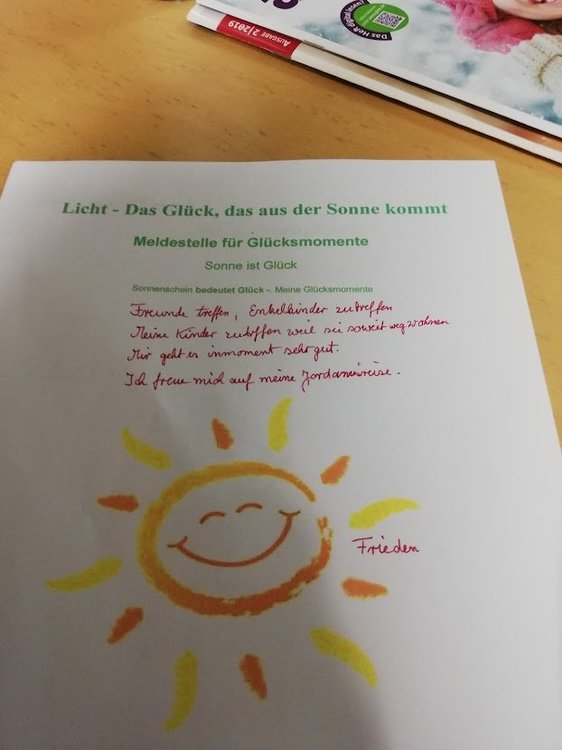 Das Heft digital lesen!
AUSGABE 2 | 2019
Licht - Das Glück, das aus der Sonne kommt
Meldestelle für Glücksmomente
Sonne ist Glück
Sonnenschein bedeutet Glück -. Meine Glücksmomente
Freunde treffen, Enkelkinder zutreffen
Meine Kinder zutreffen weil sie soweit weg wohnen
Mir geht es inmoment sehr gut.
Ich freue mich auf meine Jordanienreise.
Frieden